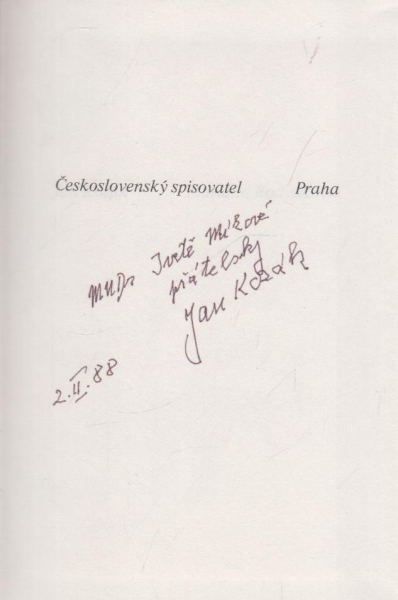 Československý spisovatel Praha
MUDr Ivetě Míkové
přátelsky
Jan Kozák
2.II.88